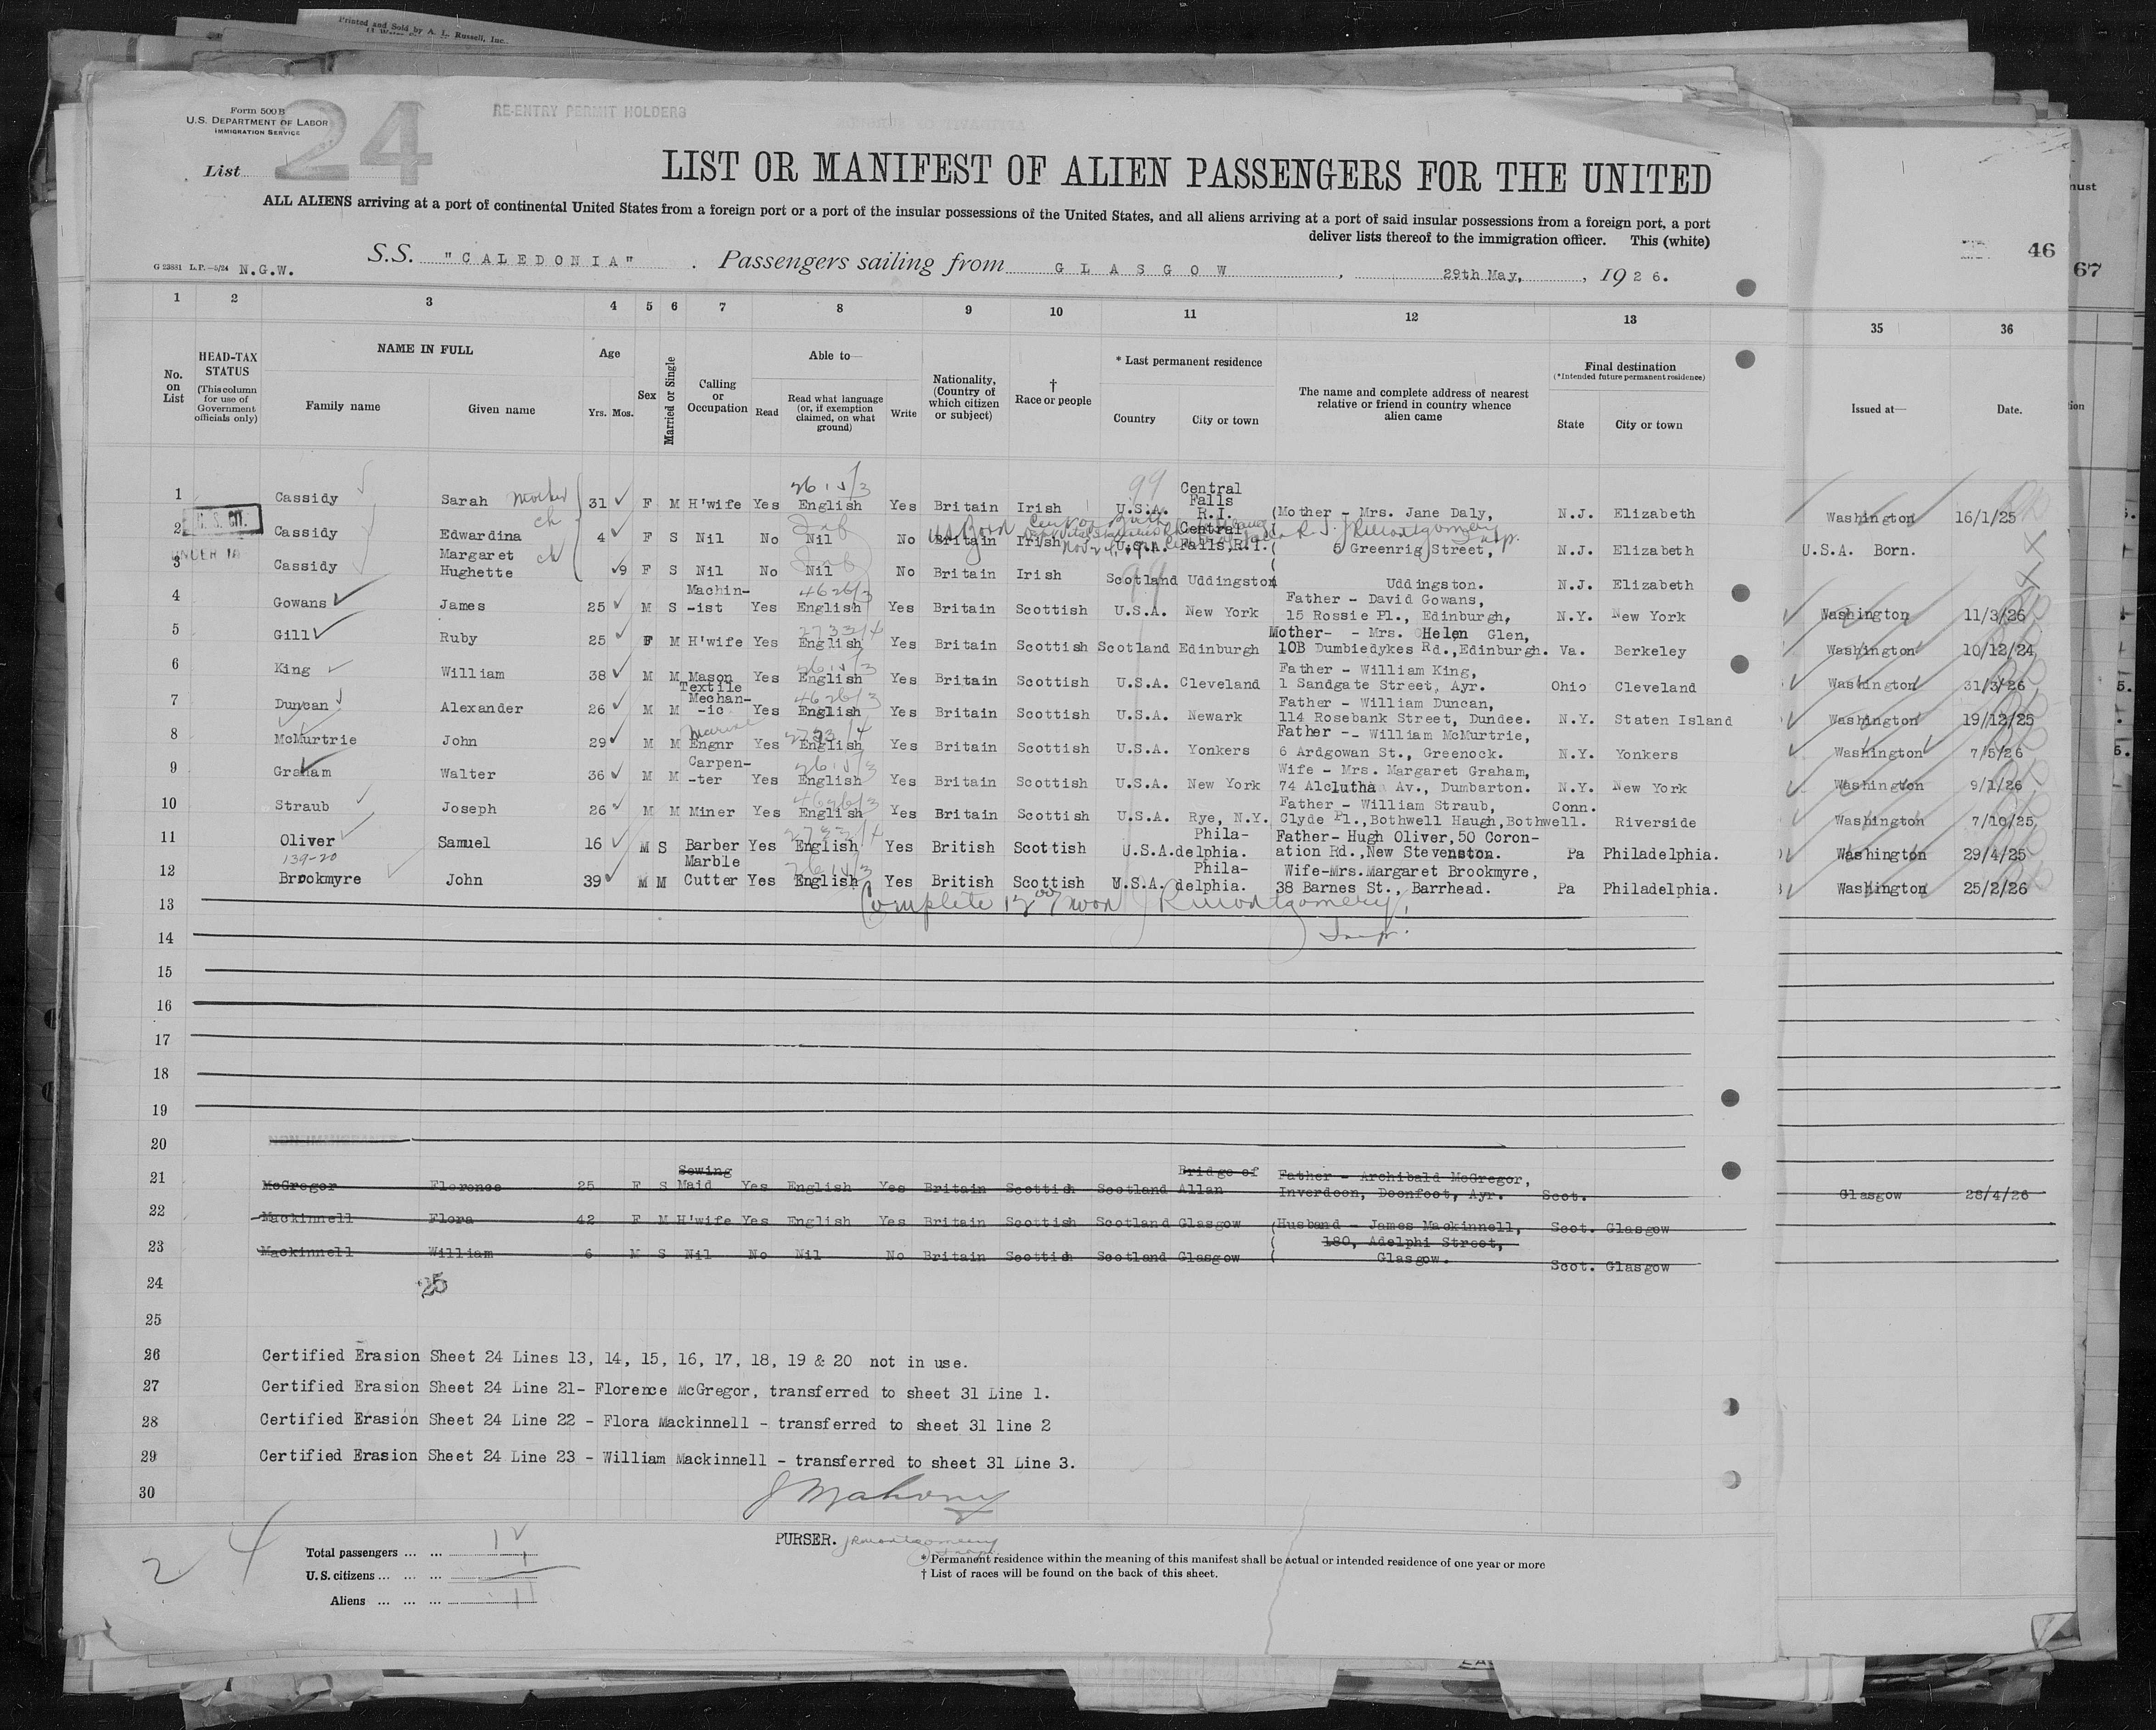 Printed and Sold by A. L. Russell, Inc.
Form 500B
U.S. DEPARTMENT OF LABOR
IMMIGRATION SERVICE
24
RE-ENTRY PERMIT HOLDERS
List
LIST OR MANIFEST OF ALIEN PASSENGERS FOR THE UNITED
ALL ALIENS arriving at a port of continental United States from a foreign port or a port of the insular possessions of the United States, and all aliens arriving at a port of said insular possessions from a foreign port, a port
deliver lists thereof to the immigration officer. This (white)
G 23881 L.P.—5/24 N.G.W.
S.S. "CALEDONIA". Passengers sailing from GLASGOW, 29th May, 1926.
46
67
1 2 3 4 5 6 7 8 9 10 11 12 13 35 36
No. on List
HEAD-TAX STATUS
(This column for use of Government officials only)
NAME IN FULL
Family name Given name
Age
Yrs. Mos.
Sex
Married or Single
Calling or Occupation
Able to—
Read
Read what language (or, if exemption claimed, on what ground)
Write
Nationality, (Country of which citizen or subject)
† Race or people
* Last permanent residence
Country City or town
The name and complete address of nearest relative or friend in country whence alien came
Final destination
(*Intended future permanent residence)
State City or town
Issued at— Date.
1 Cassidy Sarah Mother 31 F M H'wife Yes English Yes Britain Irish U.S.A. Central Falls R.I. (Mother - Mrs. Jane Daly, N.J. Elizabeth Washington 16/1/25
U.S. CIT.
2 Cassidy Edwardina ch 4 F S Nil No Nil No Britain Irish U.S.A. Central Falls, R.I. 5 Greenrig Street, N.J. Elizabeth U.S.A. Born.
US Born
UNDER 16
3 Cassidy Margaret Hughette ch 9 F S Nil No Nil No Britain Irish Scotland Uddingston Uddingston. N.J. Elizabeth
4 Gowans James 25 M S Machin-ist Yes English Yes Britain Scottish U.S.A. New York Father - David Gowans, 15 Rossie Pl., Edinburgh, N.Y. New York Washington 11/3/26
5 Gill Ruby 25 F M H'wife Yes English Yes Britain Scottish Scotland Edinburgh Mother- - Mrs. Helen Glen, 10B Dumbiedykes Rd., Edinburgh. Va. Berkeley Washington 10/12/24
6 King William 38 M M Mason Yes English Yes Britain Scottish U.S.A. Cleveland Father - William King, 1 Sandgate Street, Ayr. Ohio Cleveland Washington 31/3/26
7 Duncan Alexander 26 M M Textile Mechan-ic Yes English Yes Britain Scottish U.S.A. Newark Father - William Duncan, 114 Rosebank Street, Dundee. N.Y. Staten Island Washington 19/12/25
8 McMurtrie John 29 M M Marine Engnr Yes English Yes Britain Scottish U.S.A. Yonkers Father -- William McMurtrie, 6 Ardgowan St., Greenock. N.Y. Yonkers Washington 7/5/26
9 Graham Walter 36 M M Carpen-ter Yes English Yes Britain Scottish U.S.A. New York Wife - Mrs. Margaret Graham, 74 Alclutha Av., Dumbarton. N.Y. New York Washington 9/1/26
10 Straub Joseph 26 M M Miner Yes English Yes Britain Scottish U.S.A. Rye, N.Y. Father - William Straub, Clyde Pl., Bothwell Haugh, Bothwell. Conn. Riverside Washington 7/10/25
11 Oliver Samuel 16 M S Barber Yes English Yes British Scottish U.S.A. Phila-delphia. Father- Hugh Oliver, 50 Coron-ation Rd., New Stevenston. Pa Philadelphia. Washington 29/4/25
139-20
12 Brookmyre John 39 M M Marble Cutter Yes English Yes British Scottish U.S.A. Phila-delphia. Wife-Mrs. Margaret Brookmyre, 38 Barnes St., Barrhead. Pa Philadelphia. Washington 25/2/26
13 Complete 12 00 noon J Rmontgomery
Insp.
14
15
16
17
18
19
20
21 McGregor Florence 25 F S Sewing Maid Yes English Yes Britain Scottish Scotland Bridge of Allan Father - Archibald McGregor, Inverdoon, Doonfoot, Ayr. Scot. Glasgow 28/4/26
22 Mackinnell Flora 42 F M H'wife Yes English Yes Britain Scottish Scotland Glasgow (Husband - James Mackinnell, Scot. Glasgow
23 Mackinnell William 6 M S Nil No Nil No Britain Scottish Scotland Glasgow 180, Adelphi Street, Glasgow. Scot. Glasgow
24 25
25
26 Certified Erasion Sheet 24 Lines 13, 14, 15, 16, 17, 18, 19 & 20 not in use.
27 Certified Erasion Sheet 24 Line 21- Florence McGregor, transferred to sheet 31 Line 1.
28 Certified Erasion Sheet 24 Line 22 - Flora Mackinnell - transferred to sheet 31 line 2
29 Certified Erasion Sheet 24 Line 23 - William Mackinnell - transferred to sheet 31 Line 3.
30 J Mahony
PURSER. J Rmontgomery
24
Total passengers ... ... 12
U.S. citizens ... ... ... 1
Aliens ... ... ... 11
* Permanent residence within the meaning of this manifest shall be actual or intended residence of one year or more
† List of races will be found on the back of this sheet.